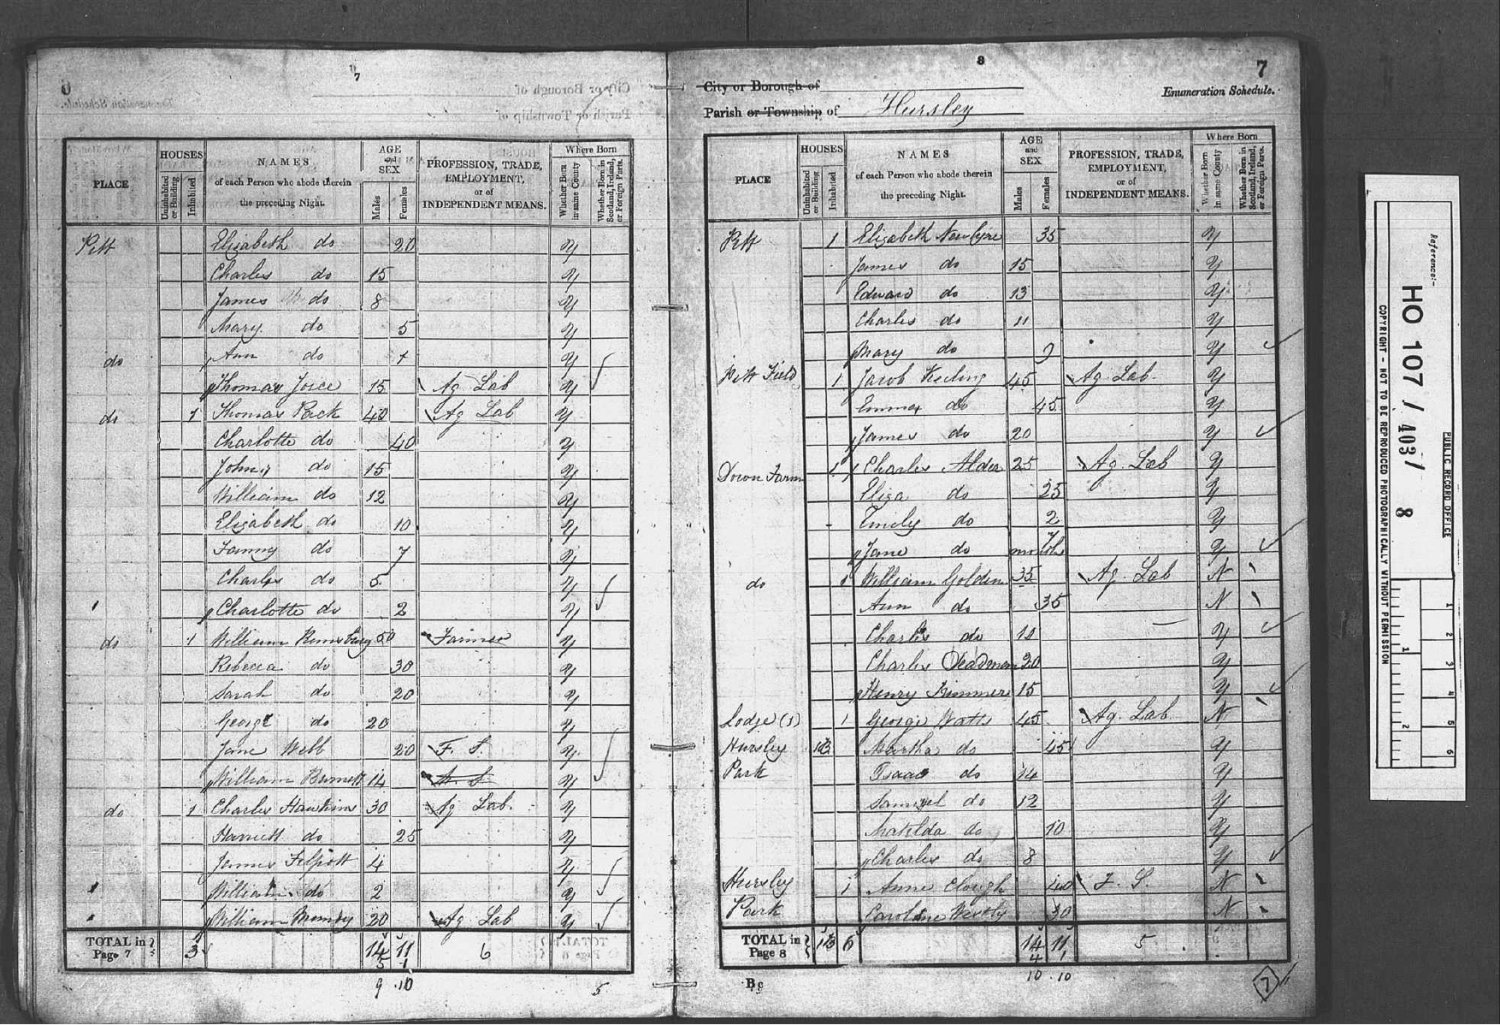 7
6
PLACE
HOUSES
Uninhabited or Building
Inhabited
NAMES
of each Person who abode therein
the preceding Night.
AGE and SEX
Males
Females
PROFESSION, TRADE,
EMPLOYMENT,
or of
INDEPENDENT MEANS.
Where Born
Whether Born in same County
Whether Born in Scotland, Ireland, or Foreign Parts.
Pitt Elizabeth do 20 Y
Charles do 15 Y
James do 8 Y
Mary do 5 Y
do Ann do Y
Thomas Joice 15 Ag Lab Y
do 1 Thomas Pack 40 Ag Lab Y
Charlotte do 40 Y
John do 15 Y
William do 12 Y
Elizabeth do 10 Y
Fanny do 7 Y
Charles do 5 Y
Charlotte do 2 Y
do 1 William 50 Farmer Y
Rebecca do 30 Y
Sarah do 20 Y
George do 20 Y
Jane Webb 20 F. S. Y
William Burnett 14 Y
do 1 Charles Hawkins 30 Ag Lab. Y
Harriett do 25 Y
James 4 Y
William do 2 Y
William Mundy 20 Ag Lab Y
TOTAL in Page 7 3 14 11 6
5 1
9 10 5
8
7
City or Borough of
Enumeration Schedule.
Parish or Township of Hursley
PLACE
HOUSES
Uninhabited or Building
Inhabited
NAMES
of each Person who abode therein
the preceding Night.
AGE and SEX
Males
Females
PROFESSION, TRADE,
EMPLOYMENT,
or of
INDEPENDENT MEANS.
Where Born
Whether Born in same County
Whether Born in Scotland, Ireland, or Foreign Parts.
Pitt 1 Elizabeth 35 Y
James do 15 Y
Edward do 13 Y
Charles do 11 Y
Mary do 9 Y
Pitt Field 1 Jacob Keeling 45 Ag Lab. Y
Emma do 45 Y
James do 20 Y
Down Farm 1 Charles Alder 25 Ag. Lab Y
Eliza do 25 Y
Emely do 2 Y
Jane do Y
do 1 William Golden 35 Ag. Lab N
Ann do 35 N
Charles do 11 Y
Charles Deadman 20 Y
Henry 15 Y
Lodge (1) 1 George Watts 45 Ag. Lab. N
Hursley Martha do 45 Y
Park Isaac do 14 Y
Samuel do 12 Y
Matilda do 10 Y
Charles do 8 Y
Hursley 1 Anne Clough 40 F. S. N
Park Caroline 30 N
TOTAL in Page 8 6 14 11 5
4 1
10 10
7
Reference:-
HO 107/403/8
PUBLIC RECORD OFFICE
COPYRIGHT - NOT TO BE REPRODUCED PHOTOGRAPHICALLY WITHOUT PERMISSION
1 2 3 4 5 6
1 2